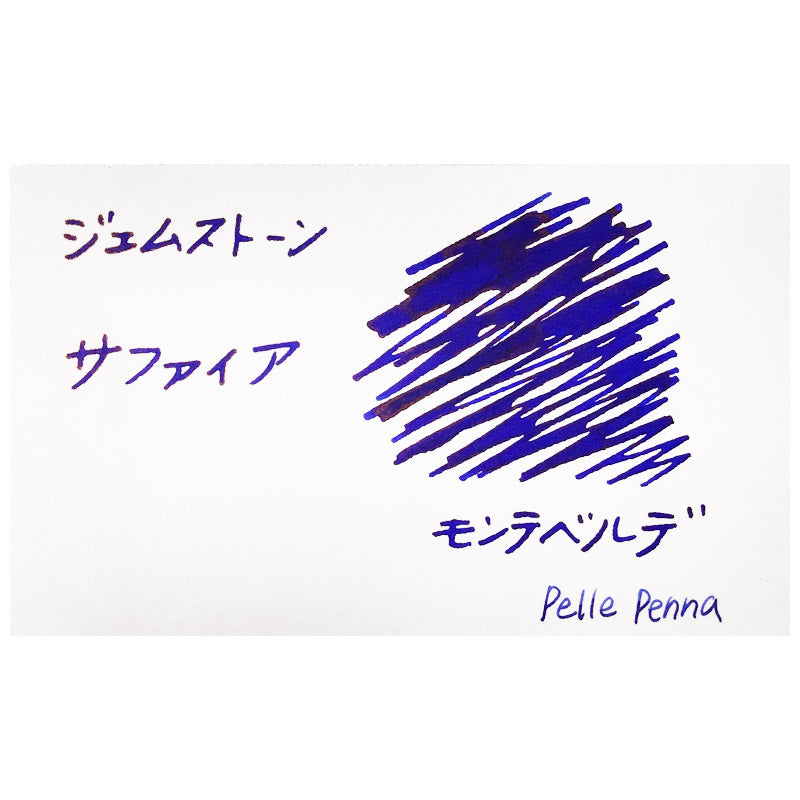 ジェムストーン
サファイア
モンテベルデ
Pelle Penna